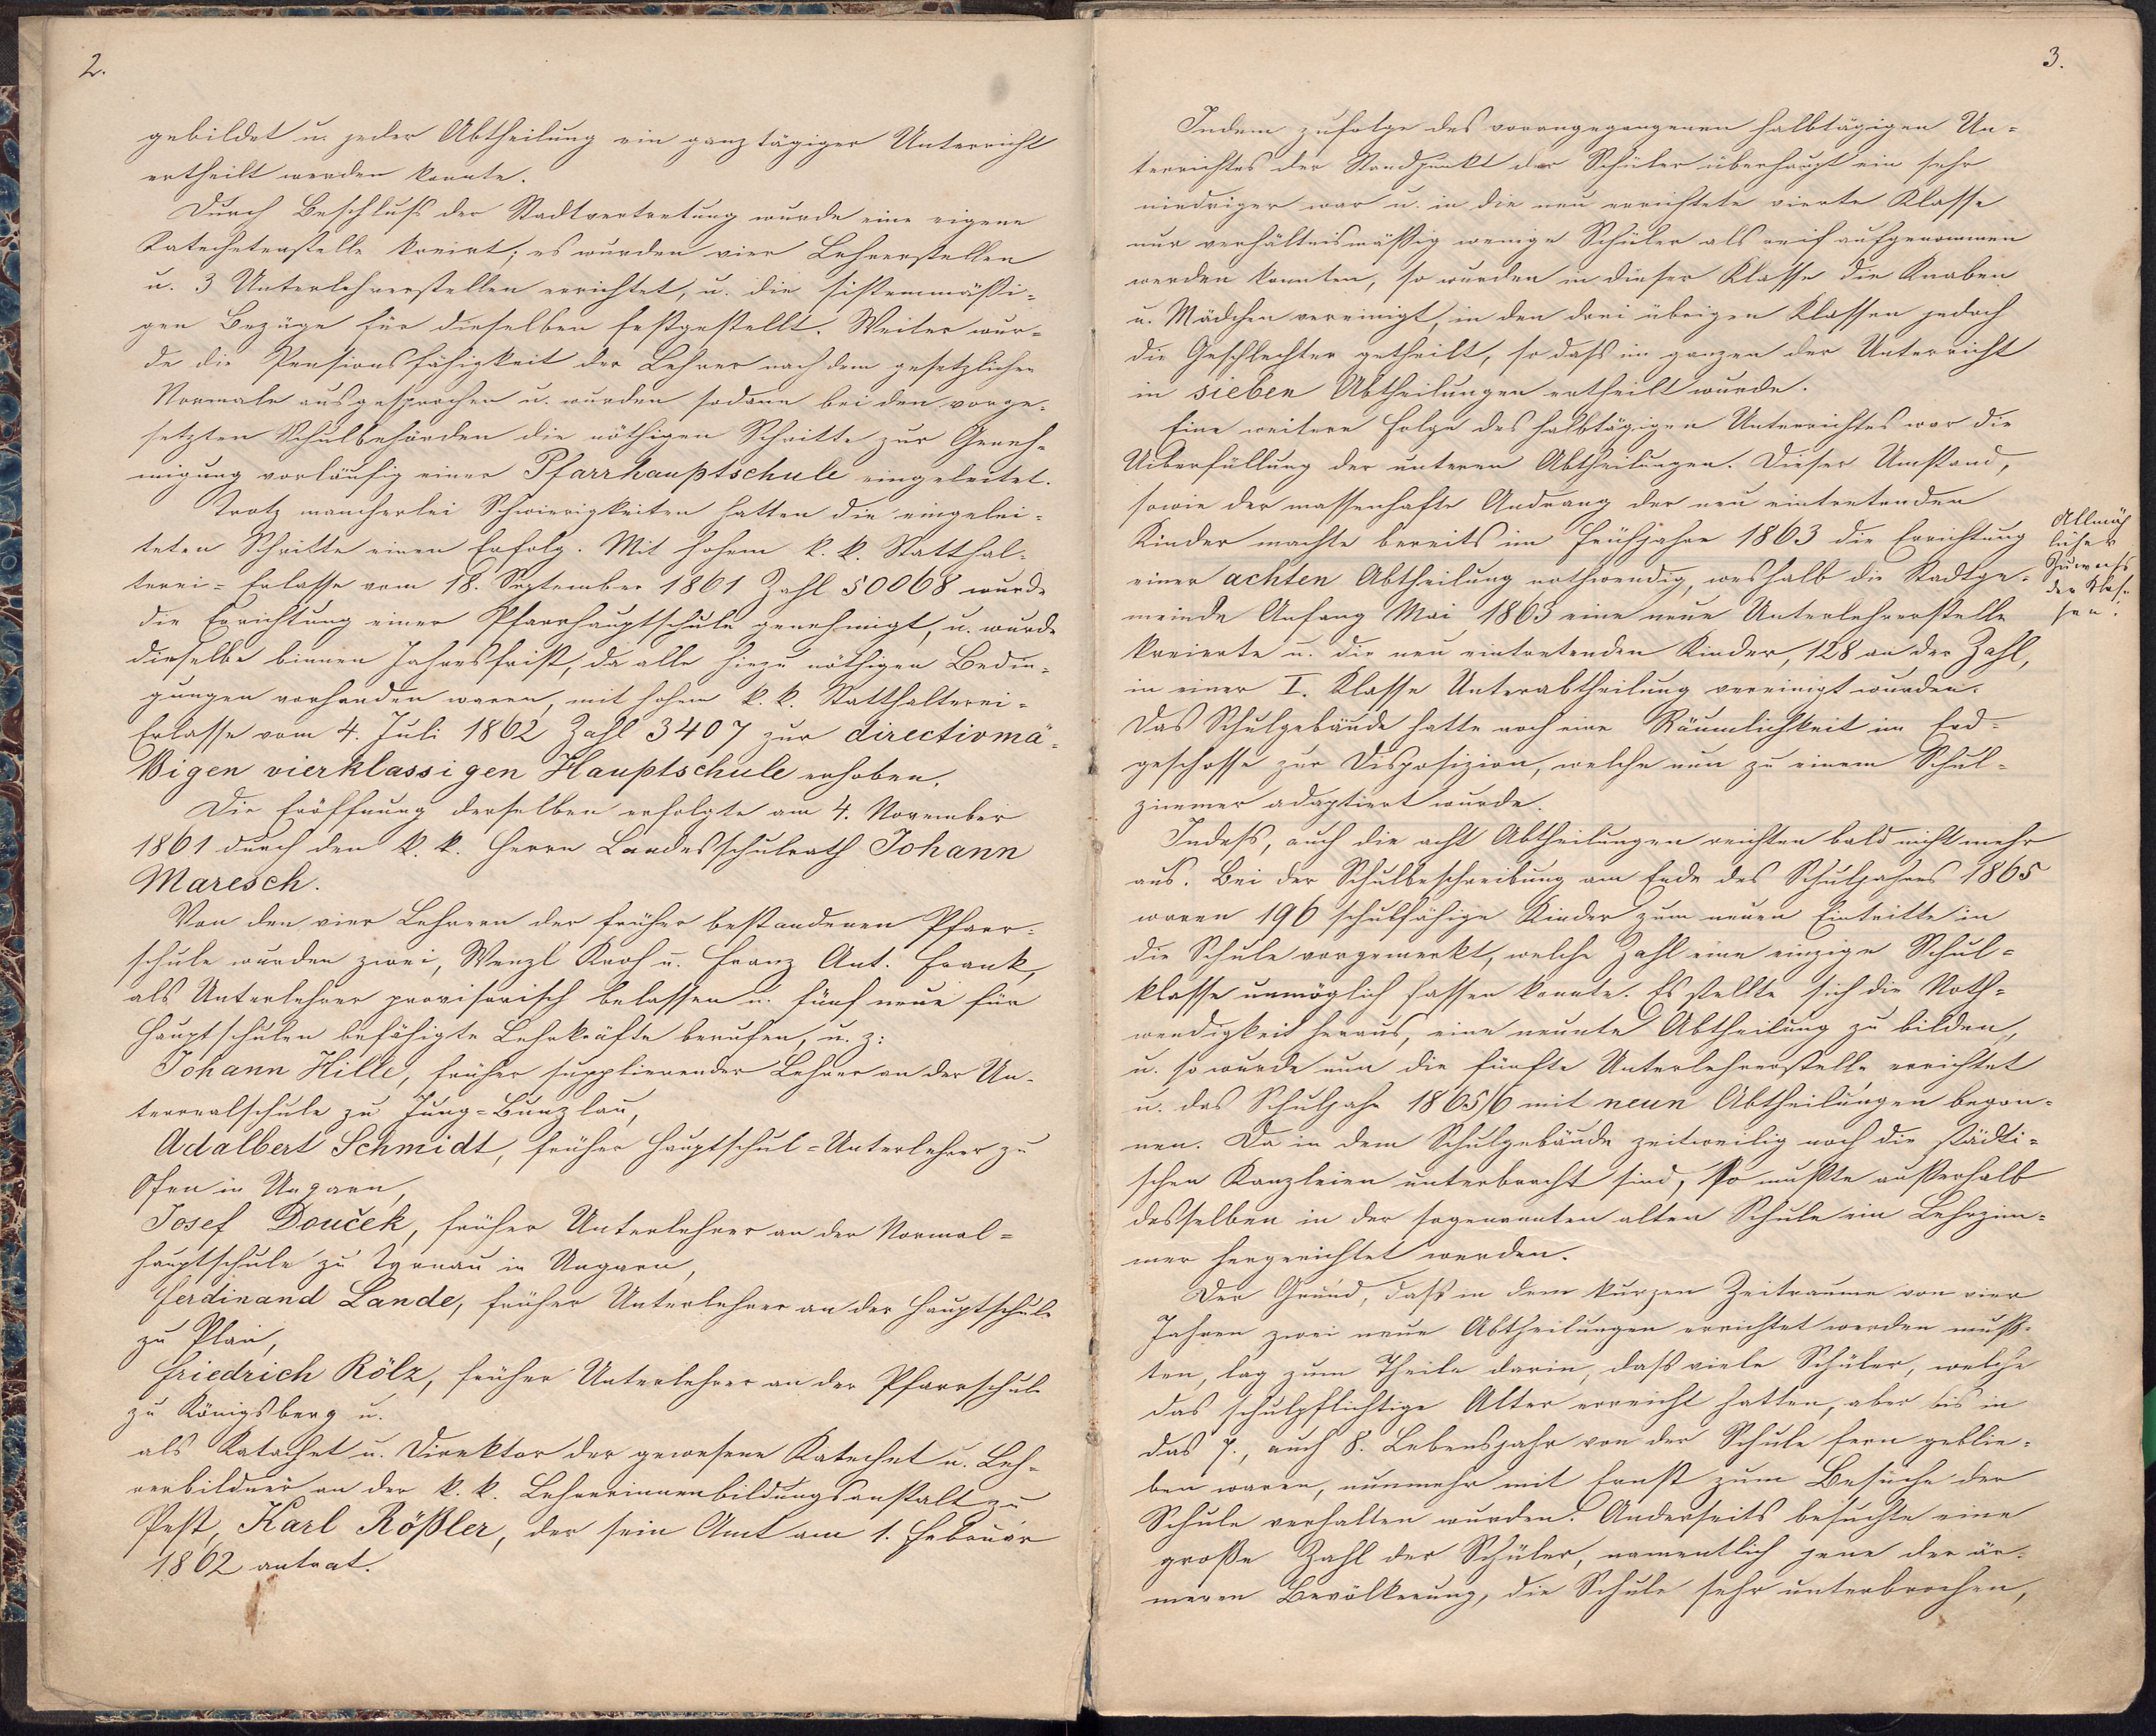 2.
gebildet u. jeder Abtheilung ein ganztägiger Unterricht
ertheilt werden konnte.
Durch Beschluß der Stadtvertretung wurde eine eigene
Katechetenstelle kreirt; es wurden vier Lehrerstellen
u. 3 Unterlehrerstellen errichtet, u. die sistemmäßi-
gen Bezüge für dieselben festgestellt. Weiter wur-
de die Pensionsfähigkeit der Lehrer nach dem gesetzlichen
Normale ausgesprochen u. wurden sodann bei den vorge-
setzten Schulbehörden die nöthigen Schritte zur Geneh-
migung vorläufig einer Pfarrhauptschule eingeleitet.
Trotz mancherlei Schwierigkeiten hatten die eingelei-
teten Schritte einen Erfolg. Mit hohem k. k. Statthal-
terei-Erlasse vom 18. September 1861 Zahl 50068 wurde
die Errichtung einer Pfarrhauptschule genehmigt, u. wurde
dieselbe binnen Jahresfrist, da alle hiezu nöthigen Bedin-
gungen vorhanden waren, mit hohem k. k. Statthalterei-
Erlasse vom 4. Juli 1862 Zahl 3407 zur directivmä-
ßigen vierklassigen Hauptschule erhoben.
Die Eröffnung derselben erfolgte am 4. November
1861 durch den k. k. Herrn Landesschulrath Johann
Maresch.
Von den vier Lehrern der früher bestandenen Pfarr-
schule wurden zwei, Wenzl Kroh u. Franz Ant. Frank,
als Unterlehrer provisorisch belassen u. fünf neue für
Hauptschulen befähigte Lehrkräfte berufen, u. z:
Johann Hille, früher supplierender Lehrer an der Un-
terrealschule zu Jung-Bunzlau,
Adalbert Schmidt, früher Hauptschul-Unterlehrer zu
Ofen in Ungarn,
Josef Douček, früher Unterlehrer an der Normal-
hauptschule zu Tyrnau in Ungarn,
Ferdinand Lande, früher Unterlehrer an der Hauptschule
zu Plan,
Friedrich Rölz, früher Unterlehrer an der Pfarrschule
zu Königsberg u.
als Katechet u. Direktor der gewesene Katechet u. Leh-
rerbildner an der k. k. Lehrerinnenbildungsanstalt zu
Pest, Karl Rößler, der sein Amt am 1. Februar
1862 antrat.
3.
Indem zufolge des vorangegangenen halbtägigen Un-
terrichtes der Standpunkt der Schüler überhaupt ein sehr
niedriger war u. in die neu errichtete vierte Klasse
nur verhältnismäßig wenige Schüler als reif aufgenommen
werden konnten, so wurden in dieser Klasse die Knaben
u. Mädchen vereinigt, in den drei übrigen Klassen jedoch
die Geschlechter getheilt, so daß im ganzen der Unterricht
in sieben Abtheilungen ertheilt wurde.
Eine weitere Folge des halbtägigen Unterrichtes war die
Uiberfüllung der unteren Abtheilungen. Dieser Umstand,
sowie der massenhafte Andrang der neu eintretenden
Kinder machte bereits im Frühjahre 1863 die Errichtung
einer achten Abtheilung nothwendig, weshalb die Stadtge-
meinde Anfang Mai 1863 eine neue Unterlehrerstelle
kreierte u. die neu eintretenden Kinder, 128 an der Zahl,
in einer I. Klasse Unterabtheilung vereinigt wurden.
Das Schulgebäude hatte noch eine Räumlichkeit im Erd-
geschosse zur Disposizion, welche nun zu einem Schul-
zimmer adaptiert wurde.
Indeß, auch die acht Abtheilungen reichten bald nicht mehr
aus. Bei der Schulbeschreibung am Ende des Schuljahres 1865
waren 196 schulfähige Kinder zum neuen Eintritte in
die Schule vorgemerkt, welche Zahl eine einzige Schul-
klasse unmöglich fassen konnte. Es stellte sich die Noth-
wendigkeit heraus, eine neunte Abtheilung zu bilden,
u. so wurde nun die fünfte Unterlehrerstelle errichtet
u. das Schuljahr 1865/6 mit neun Abtheilungen begon-
nen. Da in dem Schulgebäude zeitweilig noch die städti-
schen Kanzleien unterbracht sind, so mußte außerhalb
desselben in der sogenannten alten Schule ein Lehrzim-
mer hergerichtet werden.
Der Grund, daß in dem kurzen Zeitraume von vier
Jahren zwei neue Abtheilungen errichtet werden muß-
ten, lag zum Theile darin, daß viele Schüler, welche
das schulpflichtige Alter erreicht hatten, aber bis in
das 7., auch 8. Lebensjahr von der Schule fern geblie-
ben waren, nunmehr mit Ernst zum Besuche der
Schule verhalten wurden. Anderseits besuchte eine
große Zahl der Schüler, namentlich jene der är-
meren Bevölkerung, die Schule sehr unterbrochen,
Allmäh
licher
Zuwachs
der Klas-
sen.